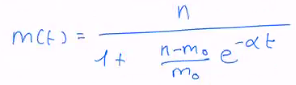 m(t) = n / (1 + (n-m₀)/m₀ e^(-αt))